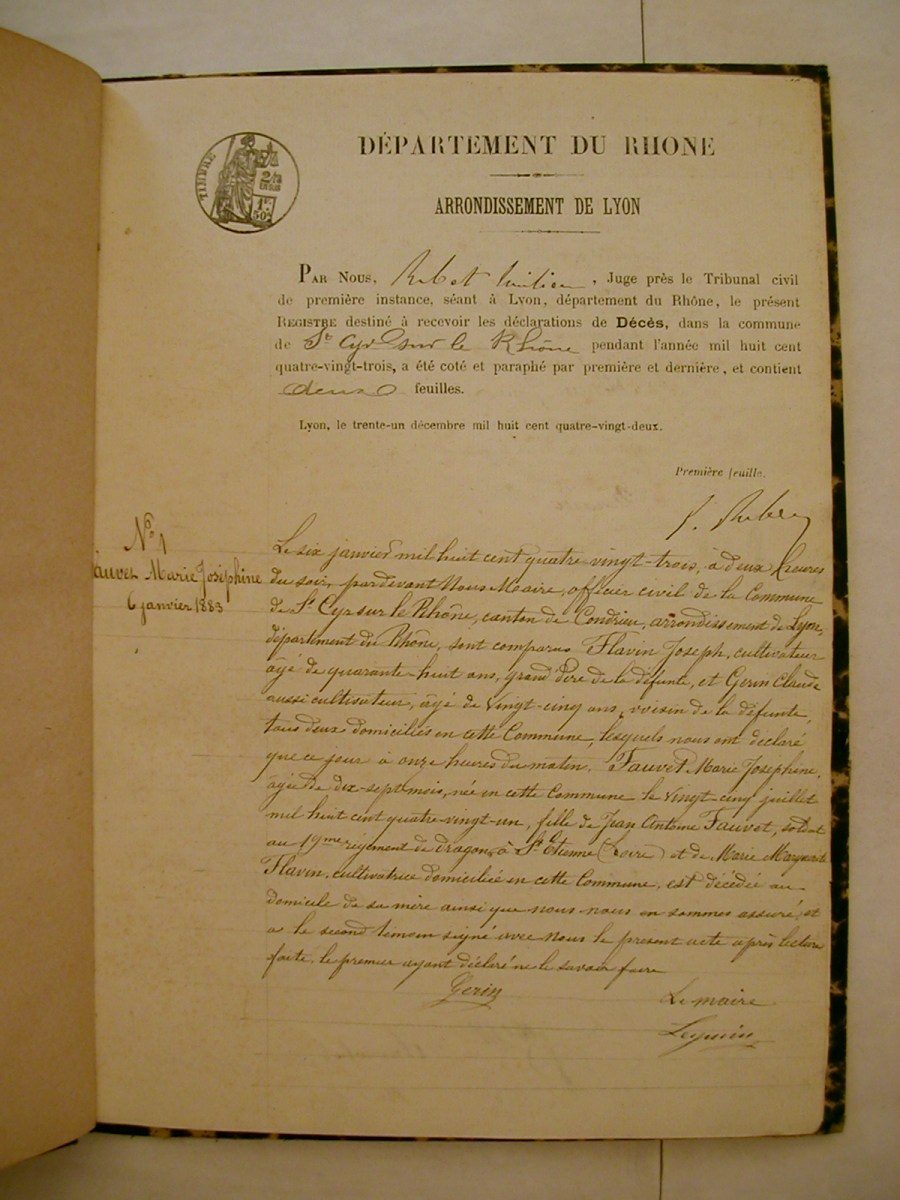 TIMBRE
2/10
EN SUS
1F.
50c.
DÉPARTEMENT DU RHONE
ARRONDISSEMENT DE LYON
PAR NOUS, , Juge près le Tribunal civil
de première instance, séant à Lyon, département du Rhône, le présent
REGISTRE destiné à recevoir les déclarations de Décès, dans la commune
de St Cyr sur le Rhône pendant l'année mil huit cent
quatre-vingt-trois, a été coté et paraphé par première et dernière, et contient
deux feuilles.
Lyon, le trente-un décembre mil huit cent quatre-vingt-deux.
Première feuille.
No 1
Fauvet Marie Joséphine
6 janvier 1883
Le six janvier mil huit cent quatre-vingt-trois, à deux heures
du soir, pardevant Nous Maire, officier civil de la Commune
de St Cyr sur le Rhône, canton de Condrieu, arrondissement de Lyon,
département du Rhône, sont comparus Flavin Joseph, cultivateur
âgé de quarante-huit ans, grand père de la défunte, et Gerin Claude
aussi cultivateur, âgé de vingt-cinq ans, voisin de la défunte,
tous deux domiciliés en cette Commune, lesquels nous ont déclaré
que ce jour à onze heures du matin, Fauvet Marie Joséphine,
âgée de dix-sept mois, née en cette Commune le vingt-cinq juillet
mil huit cent quatre-vingt-un, fille de Jean Antoine Fauvet, soldat
au 19me régiment de dragons à St Etienne (Loire) et de Marie Marguerite
Flavin, cultivatrice domiciliée en cette Commune, est décédée au
domicile de sa mère ainsi que nous nous en sommes assuré, et
a le second témoin signé avec Nous le présent acte après lecture
faite, le premier ayant déclaré ne le savoir faire
Gerin
Le maire